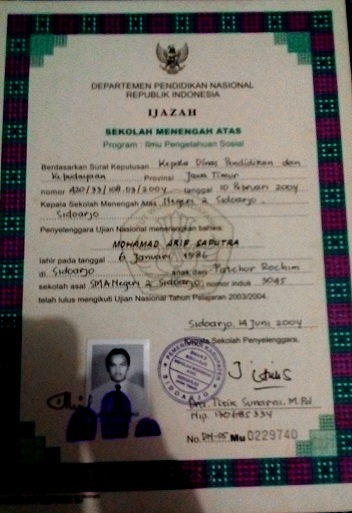 DEPARTEMEN PENDIDIKAN NASIONAL
REPUBLIK INDONESIA
IJAZAH
SEKOLAH MENENGAH ATAS
Program : Ilmu Pengetahuan Sosial
Berdasarkan Surat Keputusan Kepala Dinas Pendidikan dan
Kebudayaan Provinsi Jawa Timur
nomor 420/33/108.03/2004 tanggal 10 Februari 2004
Kepala Sekolah Menengah Atas Negeri 2 Sidoarjo,
Sidoarjo
Penyelenggara Ujian Nasional menerangkan bahwa:
MOHAMAD ARIF SAPUTRA
lahir pada tanggal 6 Januari 1986
di Sidoarjo anak dari Fatchur Rochim
sekolah asal SMA Negeri 2 Sidoarjo nomor induk 9045
telah lulus mengikuti Ujian Nasional Tahun Pelajaran 2003/2004.
Sidoarjo, 14 Juni 2004
Kepala Sekolah Penyelenggara,
PEMERINTAH KABUPATEN
SIDOARJO
Dra. Titik Sunarni, M.Pd
Nip. 130685334
No. DN-05 Mu 0229740